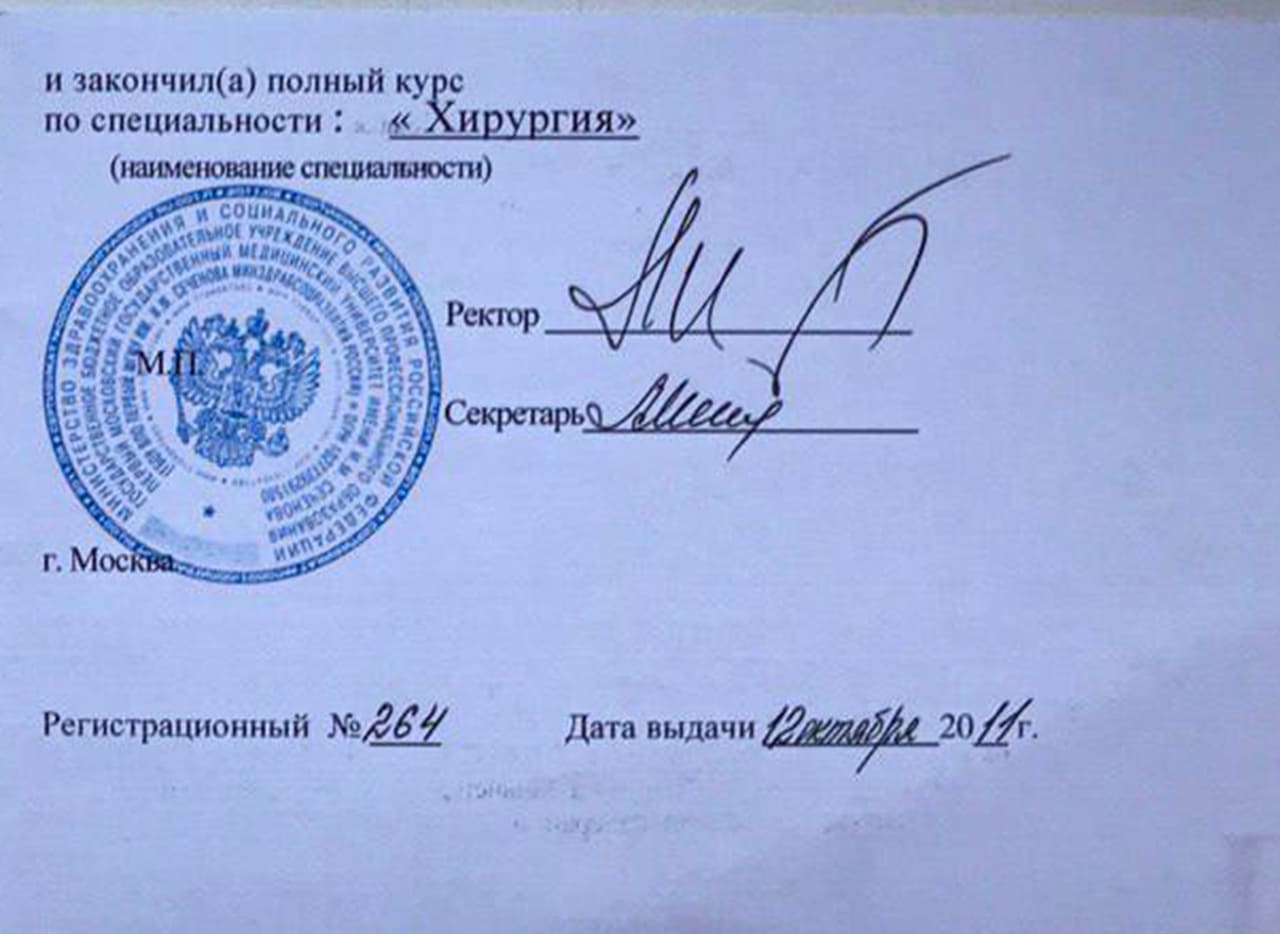 и закончил(а) полный курс
по специальности : « Хирургия»
(наименование специальности)
МИНИСТЕРСТВО ЗДРАВООХРАНЕНИЯ И СОЦИАЛЬНОГО РАЗВИТИЯ РОССИЙСКОЙ ФЕДЕРАЦИИ
ГОСУДАРСТВЕННОЕ БЮДЖЕТНОЕ ОБРАЗОВАТЕЛЬНОЕ УЧРЕЖДЕНИЕ ВЫСШЕГО ПРОФЕССИОНАЛЬНОГО ОБРАЗОВАНИЯ
ПЕРВЫЙ МОСКОВСКИЙ ГОСУДАРСТВЕННЫЙ МЕДИЦИНСКИЙ УНИВЕРСИТЕТ ИМЕНИ И.М. СЕЧЕНОВА
М.П.
Ректор
Секретарь
г. Москва
Регистрационный № 264 Дата выдачи 12 октября 2011 г.